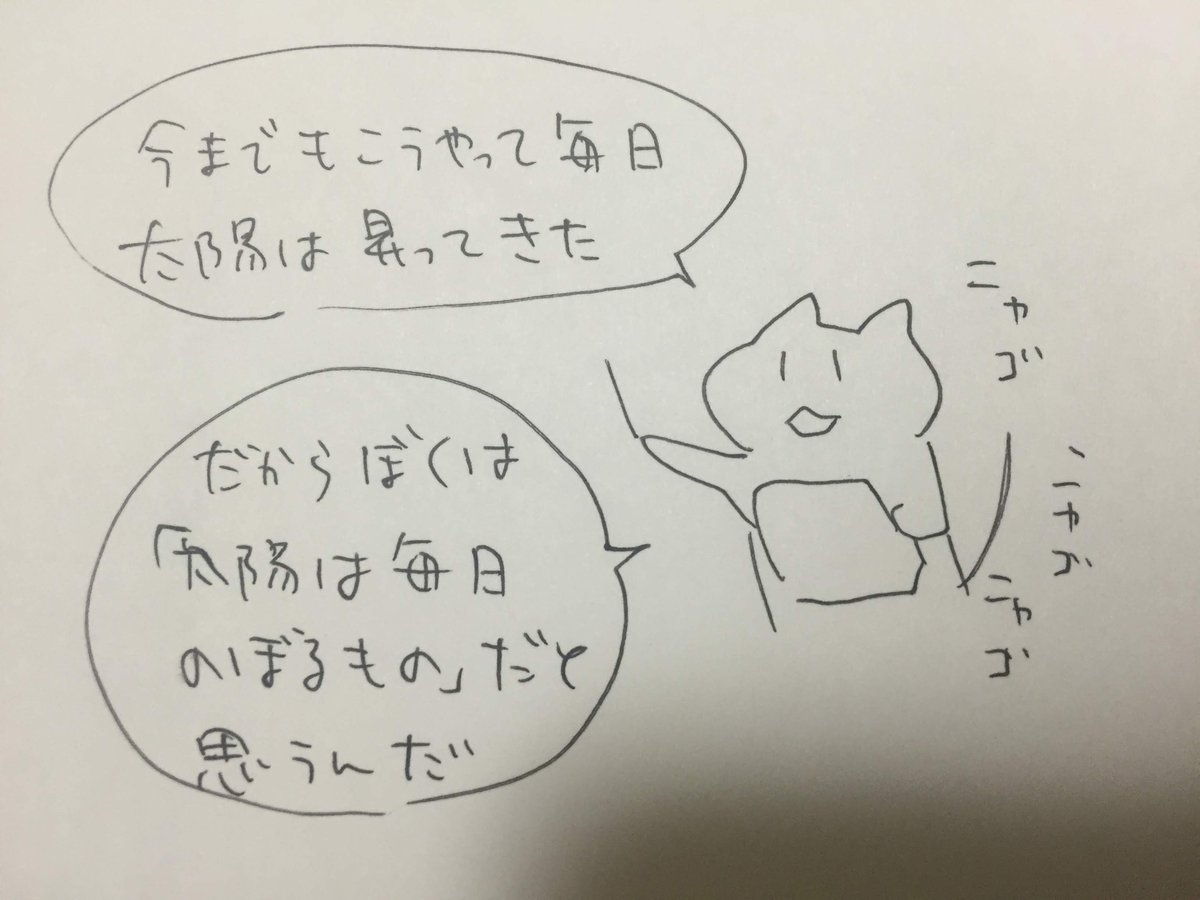 今までもこうやって毎日
太陽は昇ってきた
だからぼくは
「太陽は毎日
のぼるもの」だと
思うんだ
ニャゴ
ニャゴ
ニャゴ